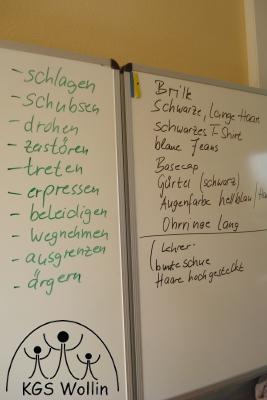 - schlagen
- Schubsen
- drohen
- zastören
- treten
- erpressen
- beleidigen
- wegnehmen
- ausgrenzen
- ärgern
KGS Wollin
Brille
Schwarze, Lange Haare
schwarzes T-Shirt
blaue Jeans
Basecap
Gürtel (schwarz)
Augenfarbe hellblau /
Ohrringe lang
(Lehrer-
bunte schue
Haare hochgesteckt